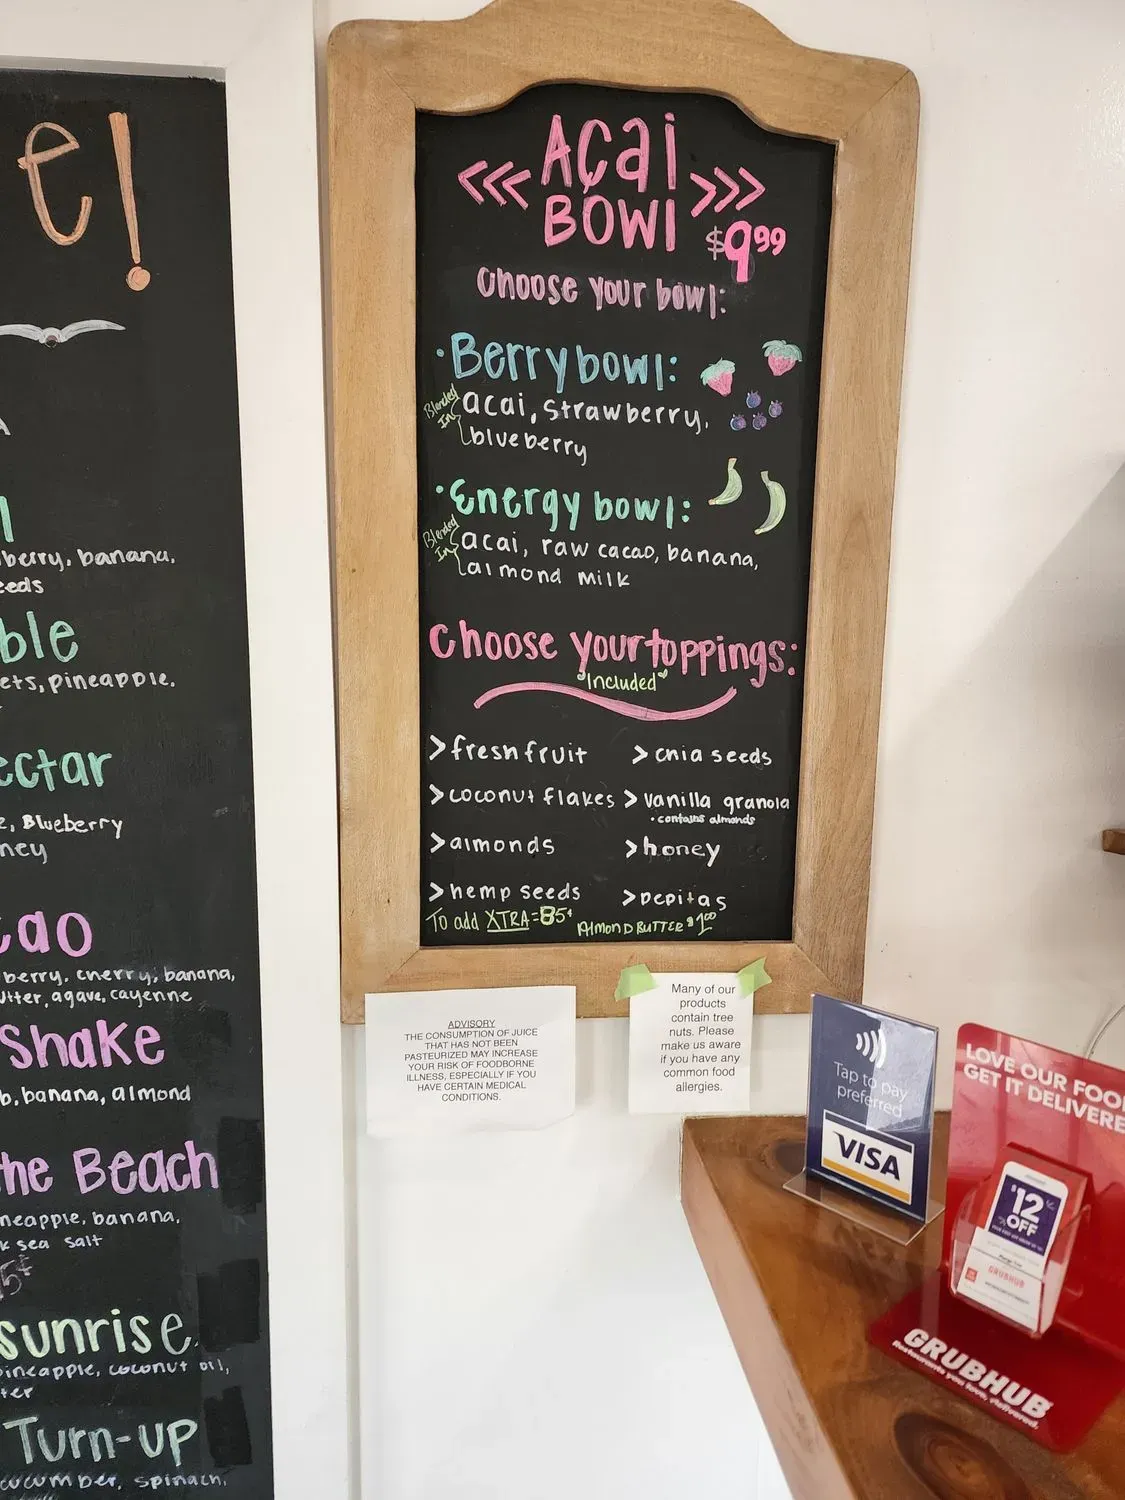 e!
berry, banana,
eeds
ble
ets, pineapple,
ectar
e, Blueberry
ney
cao
berry, cherry, banana,
utter, agave, cayenne
Shake
b, banana, almond
the Beach
neapple, banana,
k sea salt
5¢
sunrise
pineapple, coconut oil,
ter
Turn-up
cucumber, spinach,
<<< AÇai >>>
BOWl $9.99
Choose your bowl:
• Berry bowl:
Blended In { acai, strawberry,
blueberry
• Energy bowl:
Blended In { acai, raw cacao, banana,
almond milk
Choose your toppings:
"Included"
> fresh fruit
> coconut flakes
> almonds
> hemp seeds
> chia seeds
> vanilla granola
• contains almonds
> honey
> pepitas
To add XTRA = 85¢
AlmOND BUTTER $1.00
ADVISORY
THE CONSUMPTION OF JUICE
THAT HAS NOT BEEN
PASTEURIZED MAY INCREASE
YOUR RISK OF FOODBORNE
ILLNESS, ESPECIALLY IF YOU
HAVE CERTAIN MEDICAL
CONDITIONS.
Many of our
products
contain tree
nuts. Please
make us aware
if you have any
common food
allergies.
Tap to pay
preferred
VISA
LOVE OUR FOOD
GET IT DELIVERE
$12
OFF
GRUBHUB
GRUBHUB
Restaurants you love, delivered.